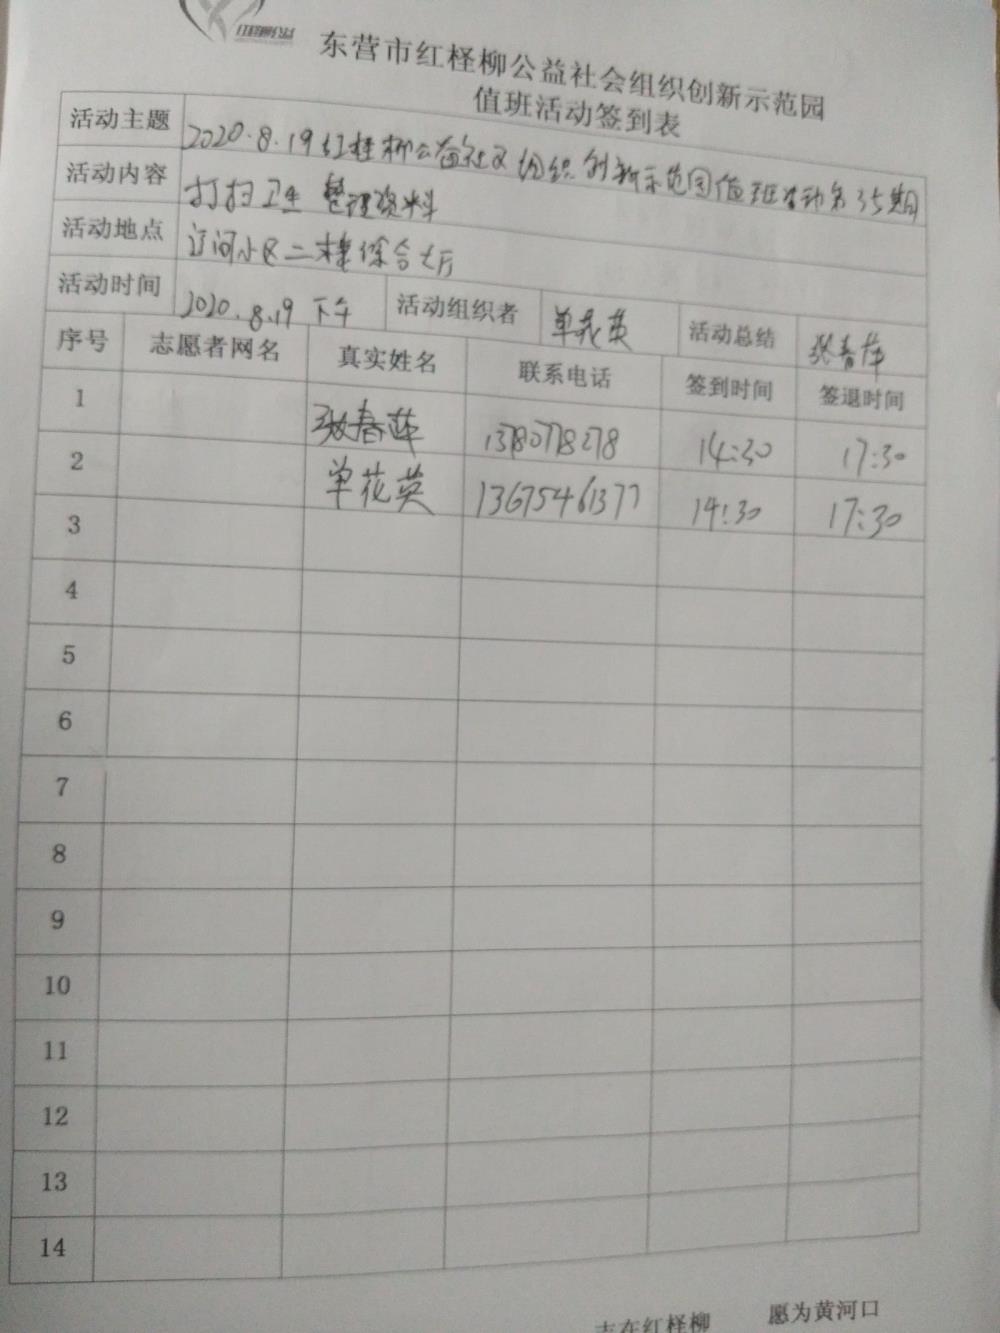 红柽柳公益
东营市红柽柳公益社会组织创新示范园
值班活动签到表
活动主题 2020.8.19红柽柳公益社会组织创新示范园值班活动第35期
活动内容 打扫卫生 整理资料
活动地点 辽河小区二楼综合大厅
活动时间 2020.8.19 下午 活动组织者 单花英 活动总结 张春萍
序号 志愿者网名 真实姓名 联系电话 签到时间 签退时间
1 张春萍 13780778278 14:30 17:30
2 单花英 13675461377 14:30 17:30
3
4
5
6
7
8
9
10
11
12
13
14
志在红柽柳 愿为黄河口